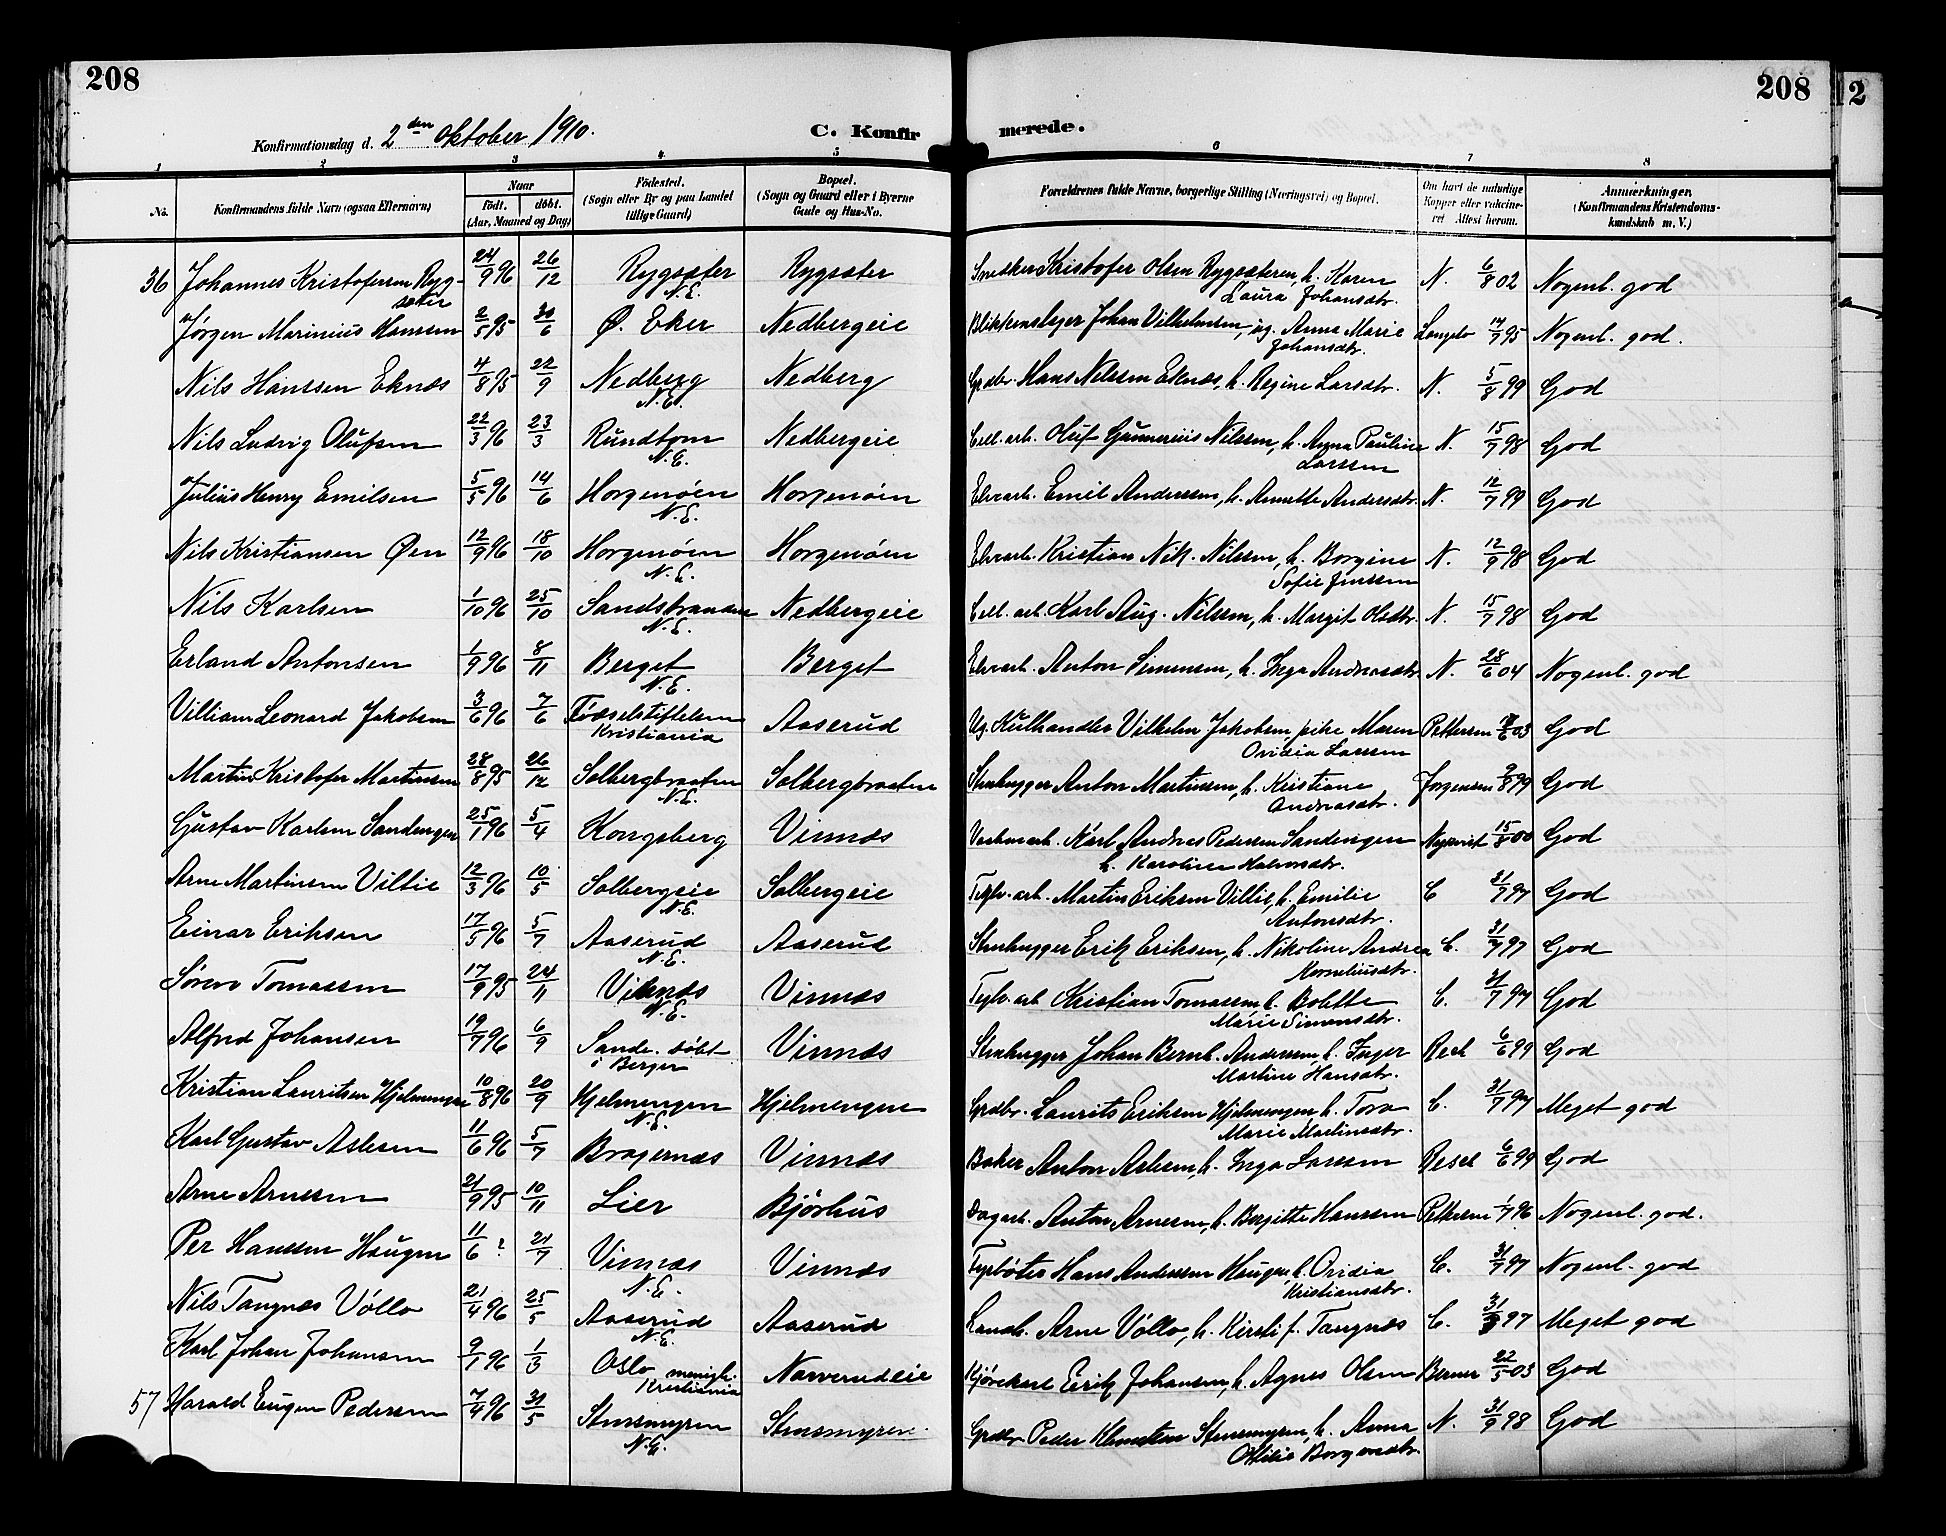 208
208
12
Konfirmationsdag d. 2den oktober 1910.
C. Konfir
merede.
1 2 3 4 5 6 7 8
No.
Konfirmandens fulde Navn (ogsaa Efternavn)
Naar
Født. døbt.
(Aar, Maaned og Dag)
Födested.
(Sogn eller By og paa Landet
tillige Gaard)
Bopæl.
(Sogn og Gaard eller i Byerne
Gade og Hus-No.
Forældrenes fulde Navne, borgerlige Stilling (Næringsvei) og Bopæl.
Om havt de naturlige
Kopper eller vakcine-
ret Attest herom.
Anmærkninger.
(Konfirmandens Kristendoms-
kundskab m. V.)
36 Johannes Kristofersen Ryg- 24/9 96 26/12 Rygsæter Rygsæter Snedker Kristofer Olsen Rygsæteren, h. Karen N. 6/8 02 Nogenl. god
sæter N.E. Laura Johansdtr.
Jørgen Marinius Hanssen 2/5 95 30/6 Ø. Eker Nedbergeie Blikkenslager Johan Vilhelmsen, ug. Anna Marie Langebo 14/7 95 Nogenl. god.
Johansdtr.
Nils Hanssen Eknæs 4/8 95 22/9 Nedberg Nedberg Grdbr. Hans Nilssen Eknæs, h. Regine Larsdtr. N. 5/8 99 God
N.E.
Nils Ludvig Olufsen 22/3 96 23/3 Rundtom Nedbergeie Cell. arb. Oluf Gunnerius Nilssen, h. Anna Pauline N. 15/7 98 God
N.E. Larssen
Julius Henry Emilsen 5/5 96 14/6 Horgenöen Horgenöen Elvearb. Emil Anderssen, h. Annette Andersdtr. N. 12/7 99 God
N.E.
Nils Kristiansen Øen 12/9 96 18/10 Horgenöen Horgenöen Elvearb. Kristian Nik. Nilssen, h. Borgine N. 12/9 98 God
N.E. Sofie Jenssen
Nils Karlsen 1/10 96 25/10 Sandstranden Nedbergeie Cell. arb. Karl Aug. Nilssen, h. Margit Olsdtr. N. 15/7 98 God
N.E.
Erland Antonsen 1/9 96 8/11 Berget Berget Elvearb. Anton Simensen, h. Inga Andreasdtr. N. 28/6 04 Nogenl. god
N.E.
Villiam Leonard Jakobsen 3/6 96 7/6 Fødselstiftelsen Aaserud Ug. Kulhandler Vilhelm Jakobsen, pike Maren Pettersen 03 God
Kristiania Ovidia Larssen
Martin Kristofer Martinsen 28/8 95 26/12 Solbergbraaten Solbergbraaten Stenhugger Anton Martinsen, h. Kristiane Jørgensen 99 God
N.E. Andreasdtr.
Gustav Karlsen Sandengen 25/1 96 5/4 Kongsberg Vinnæs Karl Andreas Pedersen Sandengen Nyqvist 15/8 00 God
h. Karoline Halvorsdtr.
Arne Martinsen Villie 12/3 96 10/5 Solbergeie Solbergeie Teglv. arb. Martin Eriksen Villie, h. Emilie C 31/7 97 God
N.E. Antonsdtr.
Einar Eriksen 17/5 96 5/7 Aaserud Aaserud Stenhugger Erik Eriksen, h. Nikoline Andrea C. 31/7 97 God
N.E. Korneliusdtr.
Sören Tomassen 17/9 95 24/11 Vinnæs Vinnæs Teglv. arb Kristian Tomassen h. Bolette C. 31/7 97 God
N.E. Marie Simensdtr.
Alfred Johansen 19/7 96 6/9 Sande. döbt Vinnæs Stenhugger Johan Bernh. Anderssen, h. Inger Resch 6/6 99 God
i Berger Martine Hansdtr.
Kristian Lauritsen Hjelmengen 10/8 96 20/9 Hjelmengen Hjelmengen Grdbr. Laurits Eriksen Hjelmengen h. Tora C. 31/7 97 Meget god
N.E. Marie Martinsdtr.
Karl Gustav Aslesen 11/6 96 5/7 Bragernæs Vinnæs Baker Anton Aslesen, h. Inga Larssen Resch 6/6 99 God
Arne Arnessen 21/9 95 10/11 Lier Bjørhus Dagarb. Anton Arnesen, h. Bergitte Hanssen Pettersen 1/7 96 Nogenl. god.
Per Hanssen Haugen 11/6 ? 21/7 Vinnæs Vinnæs Fyrbøter Hans Anderssen Haugen, h. Ovidia C. 31/7 97 Nogenl. god
N.E. Kristiansdtr.
Nils Tangnæs Völlo 21/4 96 25/5 Aaserud Aaserud Landh. Arne Völlo, h. Kersti f. Tangnæs C. 31/7 97 Meget god
N.E.
Karl Johan Johansen 9/1 96 1/3 Oslo menigh. Narverudeie Kjörekarl Erik Johansen, h. Agnes Olsen Berner 22/5 03 God
Kristiania
57 Harald Eugen Pedersen 7/4 96 31/5 Stensmyren Stensmyren. Grdbr. Peder Klemetsen Stensmyren, h. Anna N. 31/9 98 God
N.E. Ottilie Borgersdtr.